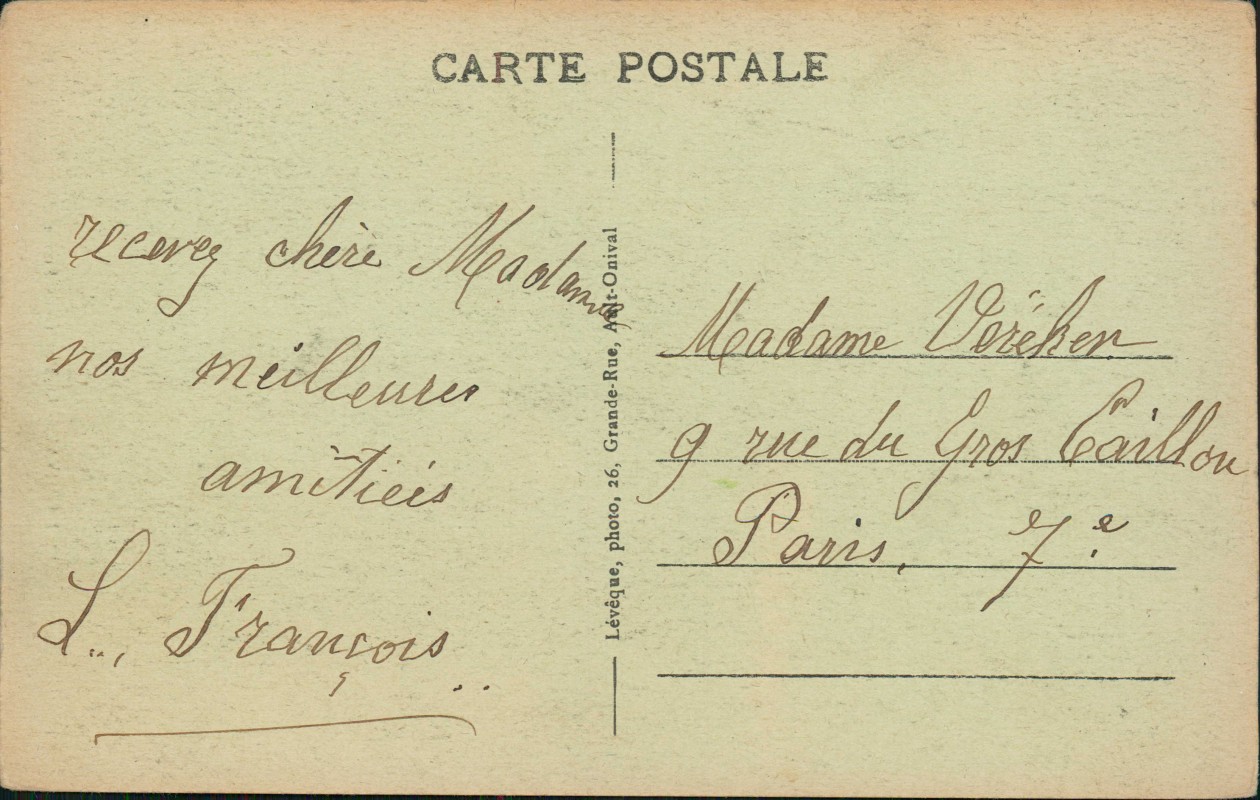 CARTE POSTALE
recevez chère Madame
nos meilleures
amitiés
L. François
Lévêque, photo, 26, Grande-Rue, Ault-Onival
Madame Veréker
9 rue du Gros Caillou
Paris, 7e